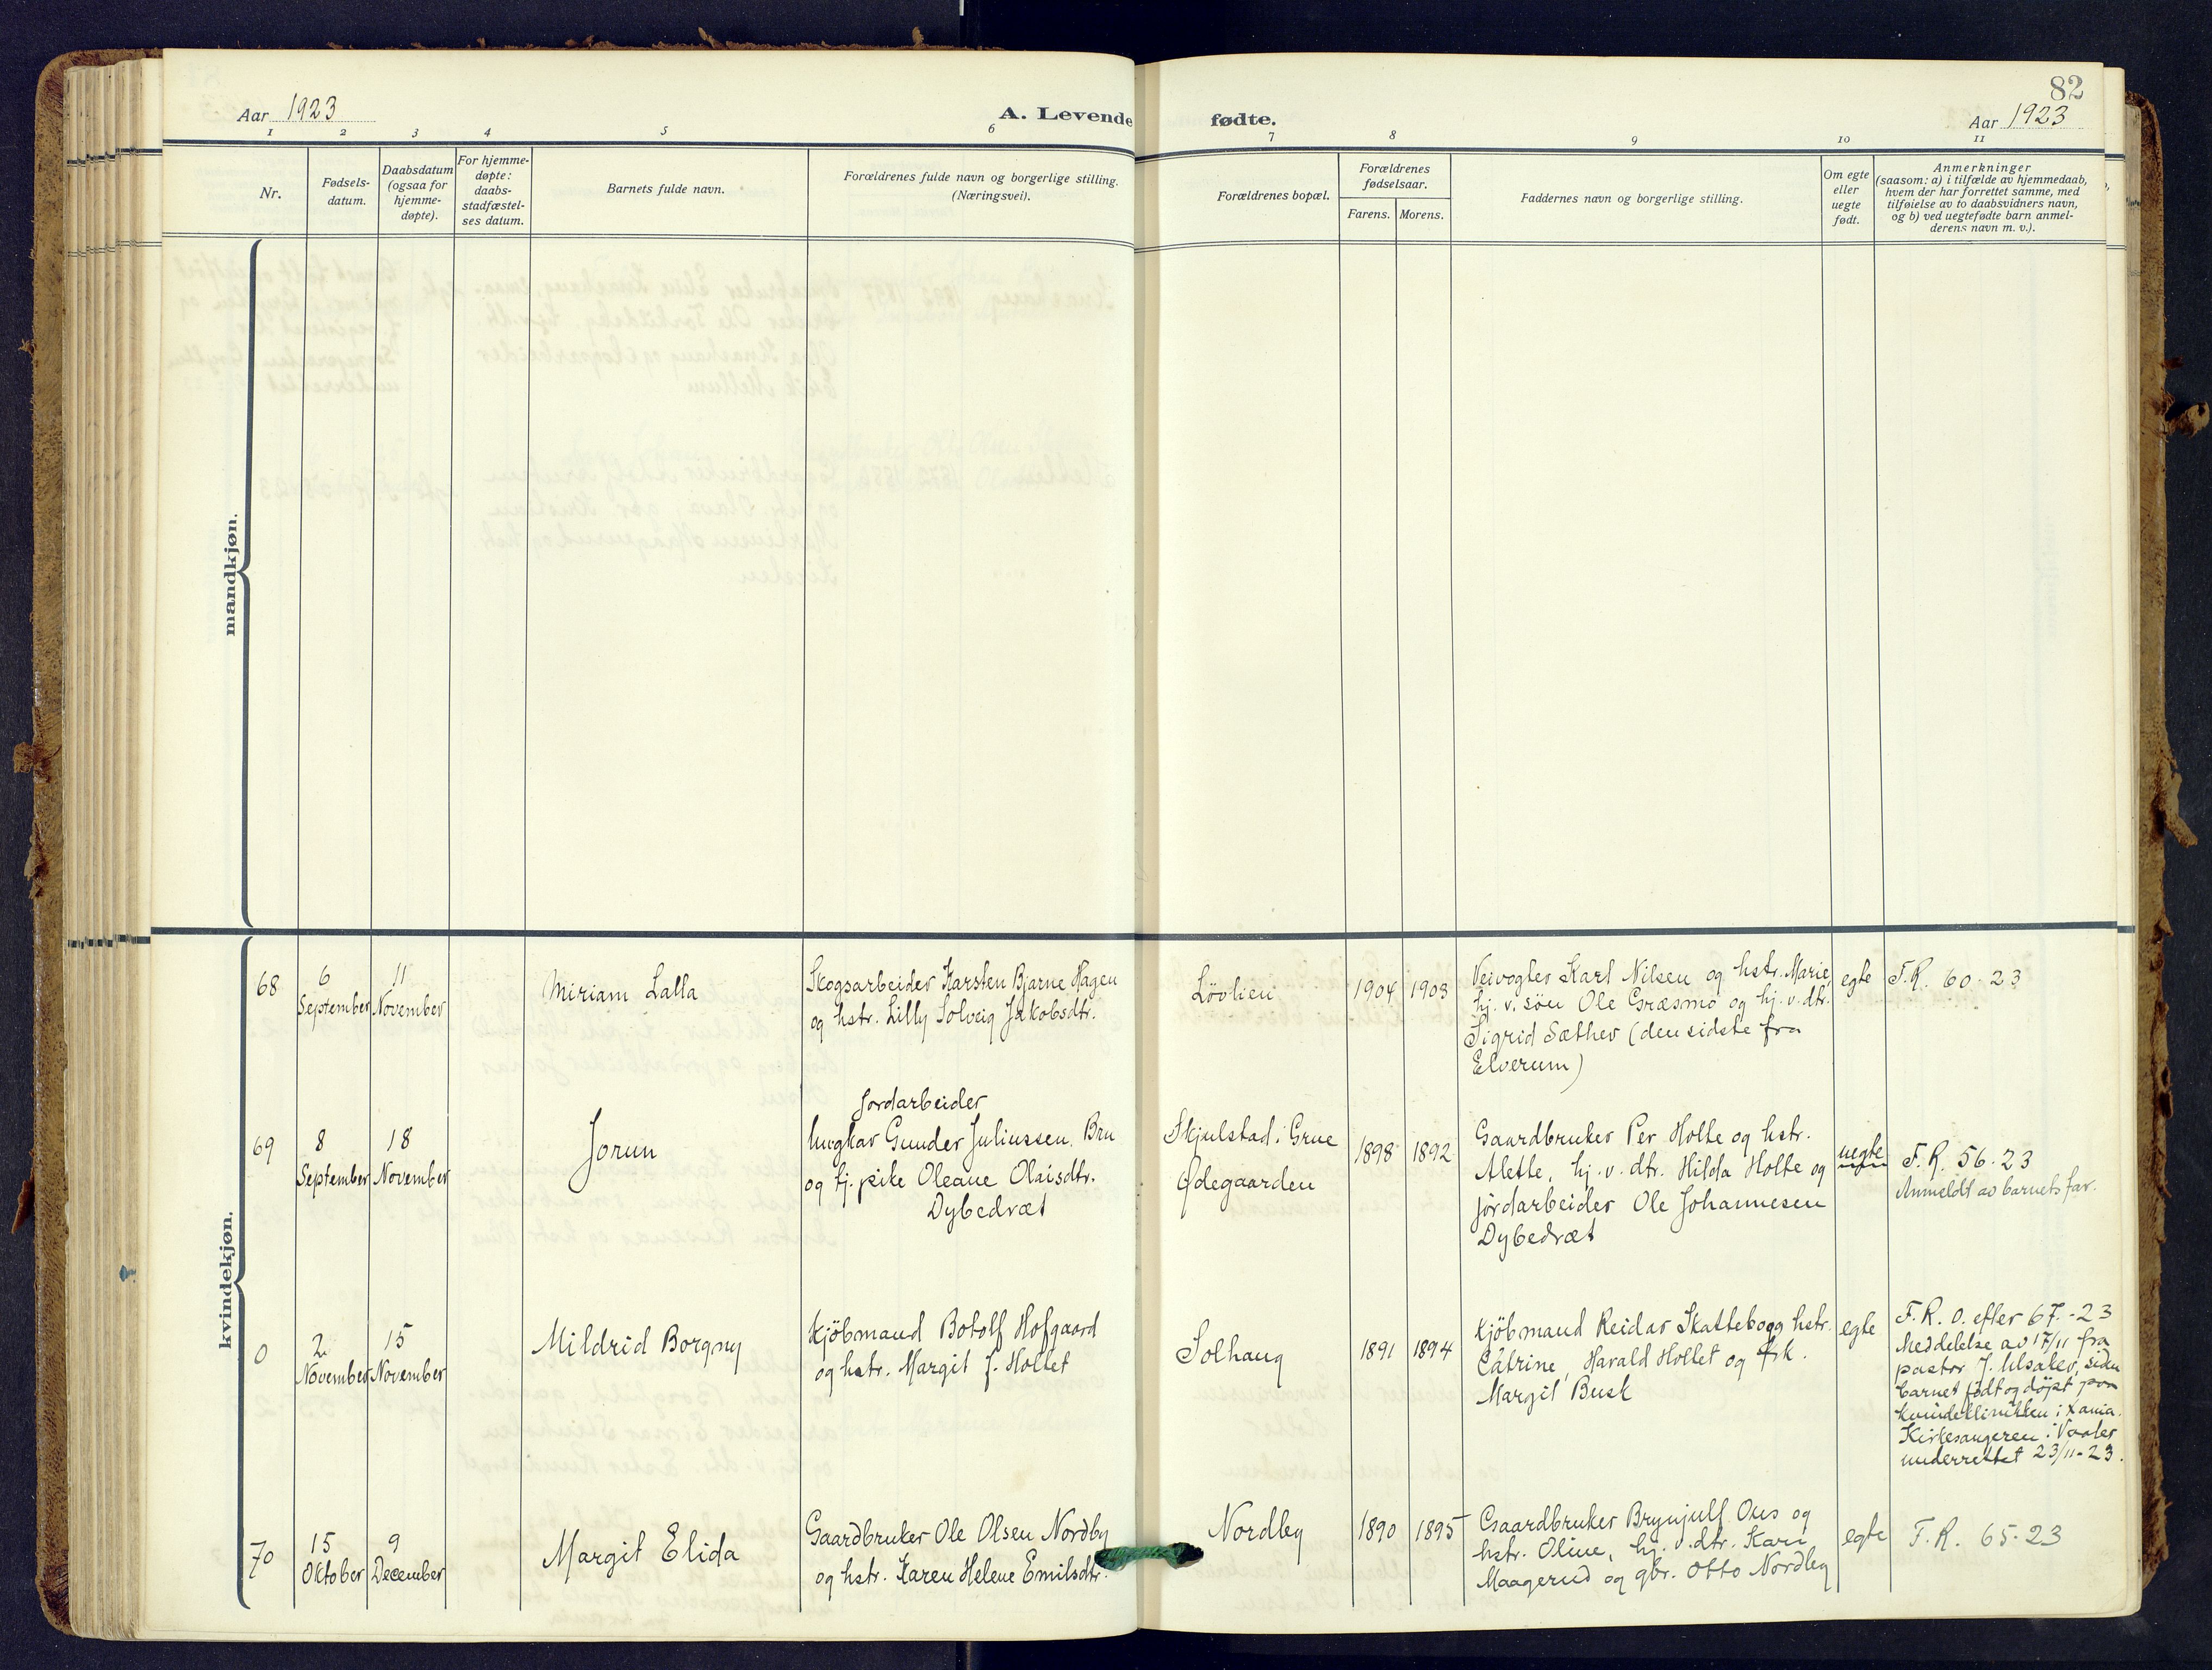 82
Aar 1923
A. Levende fødte.
Aar 1923
1 2 3 4 5 6 7 8 9 10 11
Nr.
Fødsels-
datum.
Daabsdatum
(ogsaa for
hjemme-
døpte).
For hjemme-
døpte:
daabs-
stadfæstel-
ses datum.
Barnets fulde navn.
Forældrenes fulde navn og borgerlige stilling.
(Næringsvei).
Forældrenes bopæl.
Forældrenes
fødselsaar.
Farens. Morens.
Faddernes navn og borgerlige stilling.
Om egte
eller
uegte
født.
Anmerkninger
(saasom: a) i tilfælde av hjemmedaab,
hvem der har forrettet samme, med
tilføielse av to daabsvidners navn,
og b) ved uegtefødte barn anmel-
derens navn m. v.).
mandkjøn.
kvindekjøn.
68
6
September
11
November
Miriam Lalla
Skogsarbeider Karsten Bjarne Hagen
og hstr. Lilly Solveig Jakobsdtr.
Lövlien
1904 1903
Veivogter Karl Nilsen og hstr. Marie,
hj. v. sön Ole Græsmo og hj. v. dtr.
Sigrid Sæther (den sidste fra
Elverum)
egte
F.R. 60-23
69
8
September
18
November
Jorun
Jordarbeider
Ungkar Gunder Juliussen Bru
og tj. pike Oleane Olaisdtr.
Dybedræt
Skjulstad i Grue
Ødegaarden
1898 1892
Gaardbruker Per Holte og hstr.
Alette, hj. v. dtr. Hilda Holte og
jordarbeider Ole Johannesen
Dybedræt
uegte
F.R. 56-23
Anmeldt av barnets far.
0
2
November
15
November
Mildrid Borgny
Kjöbmand Botolf Hofgaard
og hstr. Margit f. Holtet
Solhaug
1891 1894
Kjöbmand Reidar Skattebo og hstr.
Catrine, Harald Holtet og frk.
Margit Busk
egte
F.R. 0. efter 67-23
Meddelelse av 17/11 fra
pastor J. siden
barnet födt og döpt paa
kvindeklinikken i Xania.
Kirkesangeren i Vaaler
underrettet 23/11-23.
70
15
Oktober
9
December
Margit Elida
Gaardbruker Ole Olsen Nordby
og hstr. Karen Helene Emilsdtr.
Nordby
1890 1895
Gaardbruker Brynjulf Ous og
hstr. Oline, hj. v. dtr. Kari
Maagerud og gbr. Otto Nordby
egte
F.R. 65-23